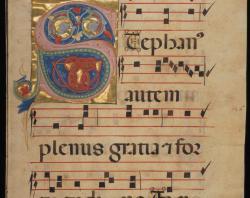 Stephanꝰ
autem
plenus gratia ⁊ for